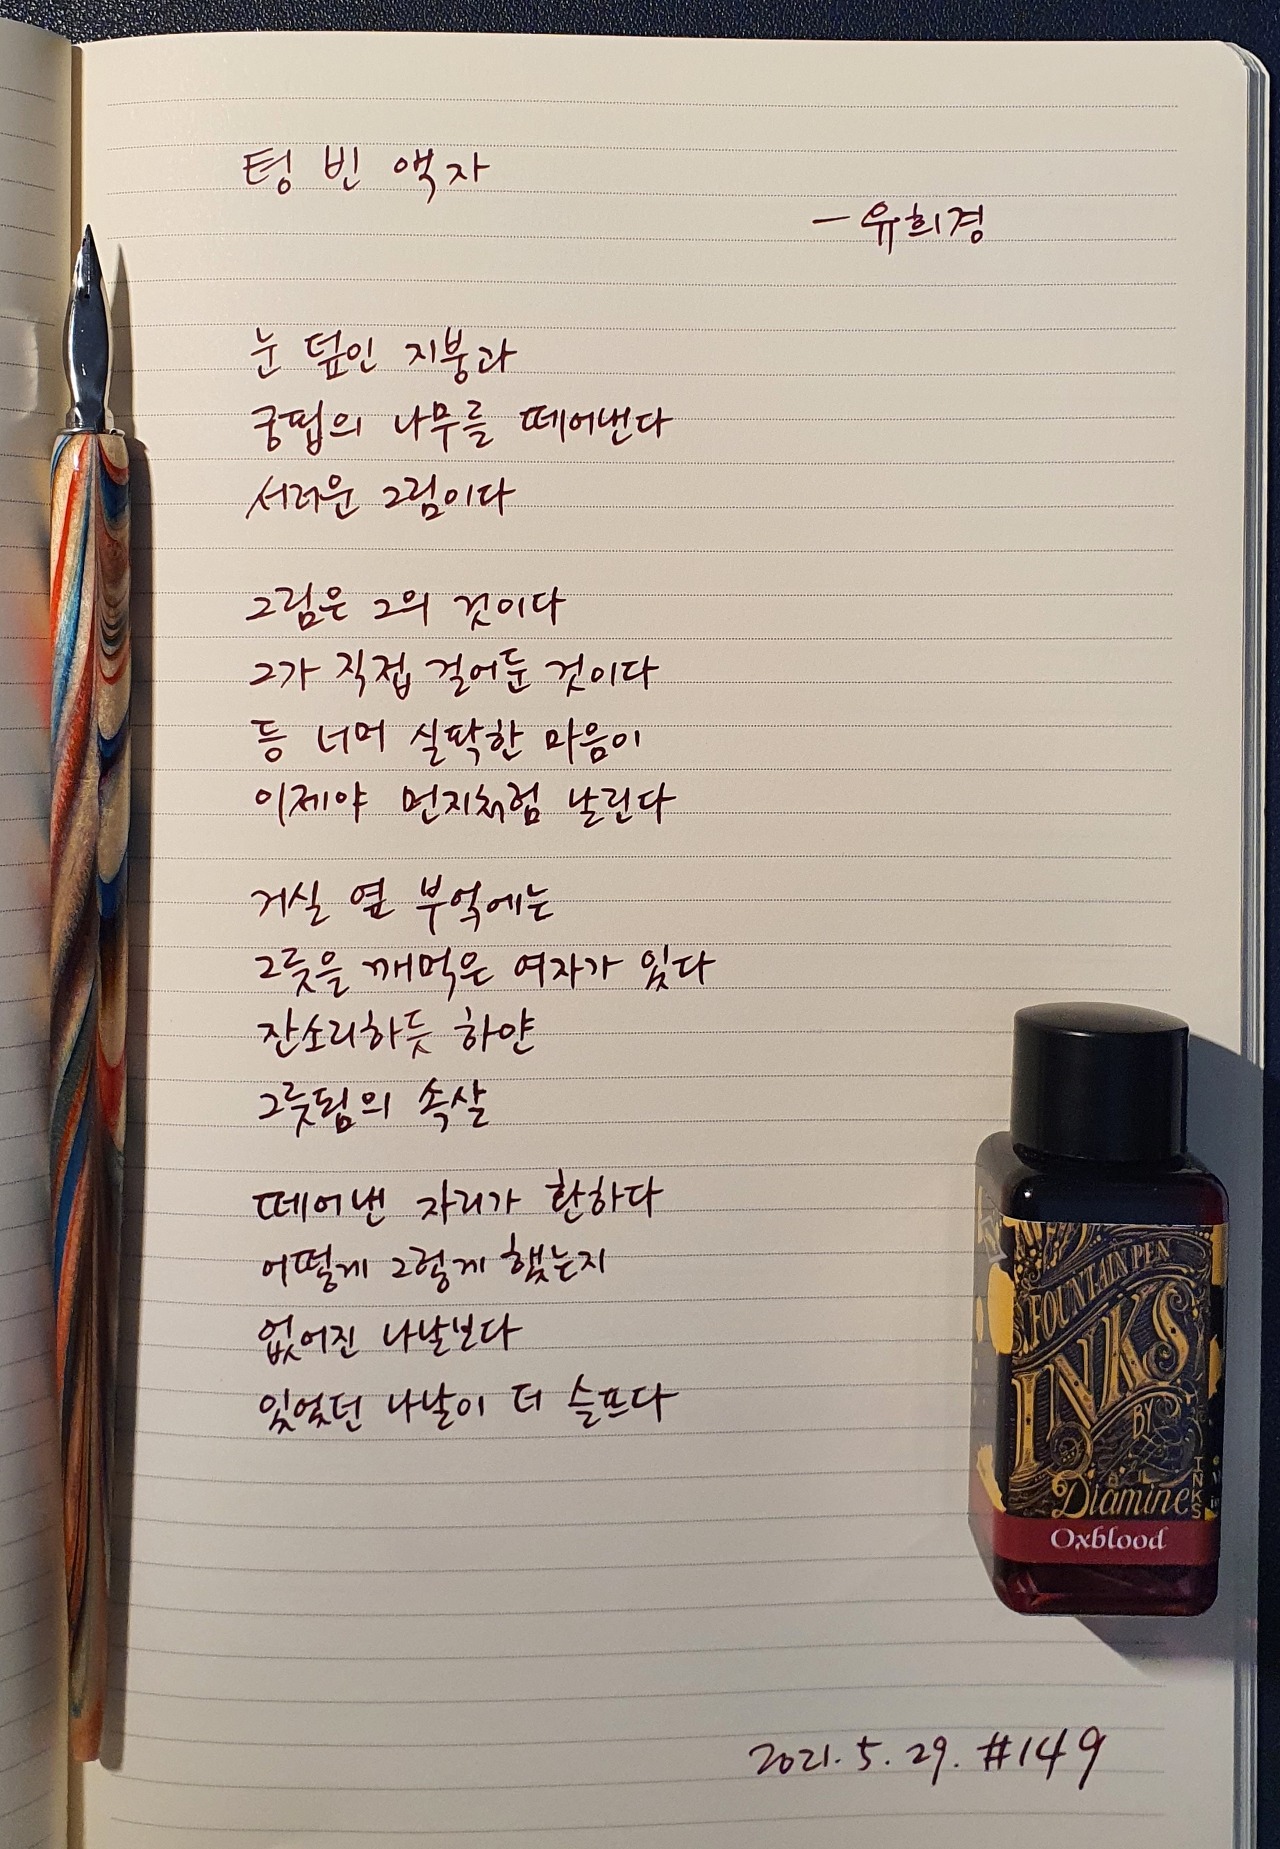 텅 빈 액자
- 유희경
눈 덮인 지붕과
궁핍의 나무를 떼어낸다
서러운 그림이다
그림은 그의 것이다
그가 직접 걸어둔 것이다
등 너머 실팍한 마음이
이제야 먼지처럼 날린다
거실 옆 부엌에는
그릇을 깨먹은 여자가 있다
잔소리하듯 하얀
그릇됨의 속살
떼어낸 자리가 환하다
어떻게 그렇게 했는지
없어진 나날보다
있었던 나날이 더 슬프다
FOUNTAIN PEN
INKS
BY
Diamine
INKS
Oxblood
2021. 5. 29. #149